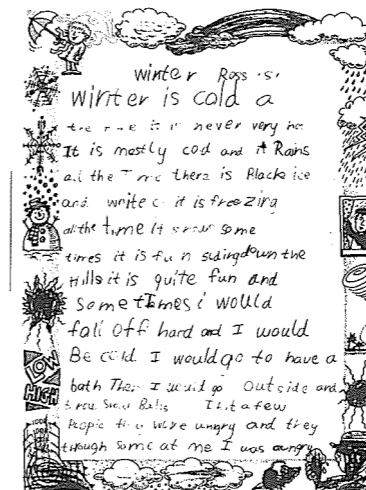 winter Ross
winter is cold a
never very
It is mostly cod and it Rains
all the there is Black ice
and write it is freezing
all the time it some
times it is fun sliding down the
Hills it is quite fun and
sometimes i would
fall off hard and I would
Be cold I would go to have a
bath Then I would go Outside and
Balls I hit a few
People were ungry and they
though some at me I was ungry
LOW
HIGH